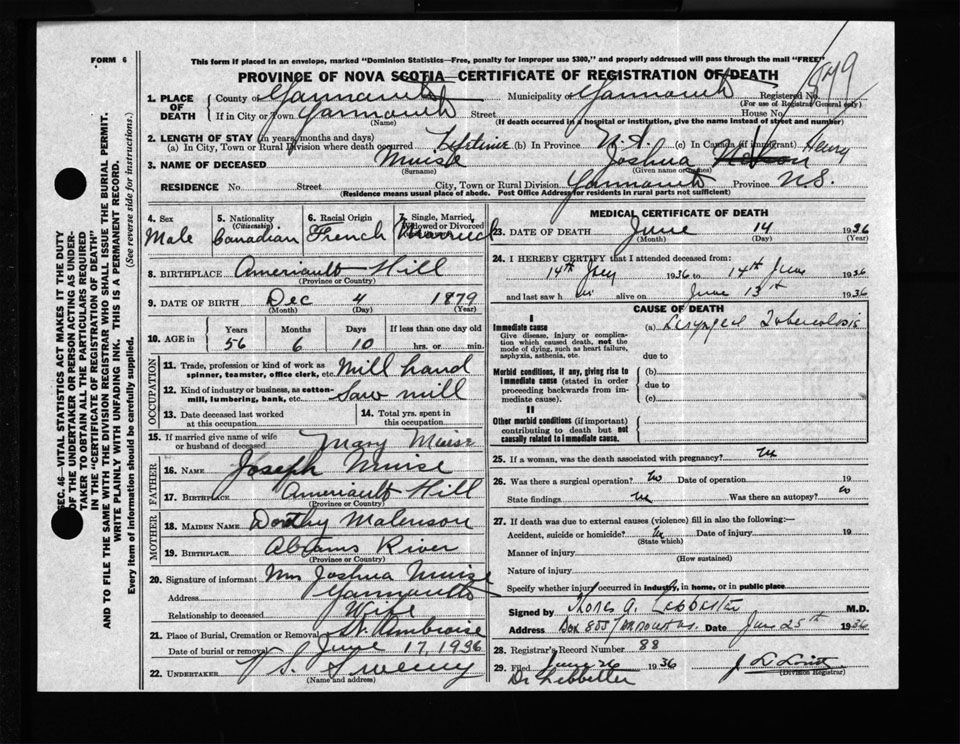 FORM 6
This form if placed in an envelope, marked "Dominion Statistics—Free, penalty for improper use $300," and properly addressed will pass through the mail "FREE"
PROVINCE OF NOVA SCOTIA—CERTIFICATE OF REGISTRATION OF DEATH
1. PLACE OF DEATH { County of Yarmouth Municipality of Yarmouth Registered No.
(For use of Registrar General only)
If in City or Town Yarmouth Street House No.
(Name) (If death occurred in a hospital or institution, give the name instead of street and number)
2. LENGTH OF STAY (in years, months and days)
(a) In City, Town or Rural Division where death occurred Lifetime (b) In Province N.S. (c) In Canada (if immigrant)
3. NAME OF DECEASED Muise Joshua Henry
(Surname) (Given name or names)
RESIDENCE No. Street City, Town or Rural Division Yarmouth Province N.S.
(Residence means usual place of abode. Post Office Address for residents in rural parts not sufficient)
4. Sex Male
5. Nationality (Citizenship) Canadian
6. Racial Origin French
7. Single, Married, Widowed or Divorced Married
8. BIRTHPLACE Ameriault Hill
(Province or Country)
9. DATE OF BIRTH Dec 4 1879
(Month) (Day) (Year)
10. AGE in Years Months Days If less than one day old
56 6 10 hrs. or min.
OCCUPATION
11. Trade, profession or kind of work as spinner, teamster, office clerk, etc. Mill hand
12. Kind of industry or business, as cotton-mill, lumbering, bank, etc. Saw mill
13. Date deceased last worked at this occupation
14. Total yrs. spent in this occupation
15. If married give name of wife or husband of deceased Mary Muise
FATHER
16. NAME Joseph Muise
17. BIRTHPLACE Ameriault Hill
(Province or Country)
MOTHER
18. MAIDEN NAME Dorothy
19. BIRTHPLACE Abrams River
(Province or Country)
20. Signature of informant Mrs Joshua Muise
Address Yarmouth
Relationship to deceased Wife
21. Place of Burial, Cremation or Removal St. Ambroise
Date of burial or removal June 17, 1936
22. UNDERTAKER V S Sweeny
(Name and address)
MEDICAL CERTIFICATE OF DEATH
23. DATE OF DEATH June 14 1936
(Month) (Day) (Year)
24. I HEREBY CERTIFY that I attended deceased from:
14th 1936 to 14th June 1936
and last saw h im alive on June 13th 1936
CAUSE OF DEATH
I
Immediate cause (a) Laryngeal Tuberculosis
Give disease, injury or complication which caused death, not the mode of dying, such as heart failure, asphyxia, asthenia, etc.
due to
Morbid conditions, if any, giving rise to immediate cause (stated in order proceeding backwards from immediate cause).
(b)
due to
(c)
II
Other morbid conditions (if important) contributing to death but not causally related to immediate cause.
25. If a woman, was the death associated with pregnancy?
26. Was there a surgical operation? no Date of operation 19
State findings Was there an autopsy? no
27. If death was due to external causes (violence) fill in also the following:—
Accident, suicide or homicide? Date of injury 19
(State which)
Manner of injury
(How sustained)
Nature of injury
Specify whether injury occurred in industry, in home, or in public place
Signed by Thos. A. Lebbetter M.D.
Address Box 855 Yarmouth N.S. Date June 25th 1936
28. Registrar's Record Number 88
29. Filed June 26 1936
(Division Registrar)
Dr Lebbetter
SEC. 46—VITAL STATISTICS ACT MAKES IT THE DUTY
OF THE UNDERTAKER OR PERSON ACTING AS UNDER-
TAKER TO OBTAIN ALL THE PARTICULARS REQUIRED
IN THE "CERTIFICATE OF REGISTRATION OF DEATH"
AND TO FILE THE SAME WITH THE DIVISION REGISTRAR WHO SHALL ISSUE THE BURIAL PERMIT.
WRITE PLAINLY WITH UNFADING INK. THIS IS A PERMANENT RECORD.
Every item of information should be carefully supplied. (See reverse side for instructions.)